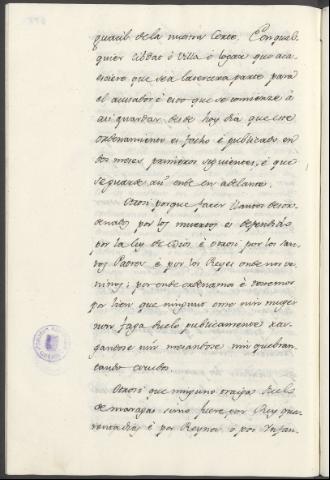 guacil de la nuestra Corte. E en qual
quier cibdat ó villa ó logar que aca-
esciere que sea la tercera parte para
el acusador é esto que se comienze á
asi guardar desde hoy dia que este
ordenamiento es fecho é publicado en
dos meses primeros siguientes, é que
se guarde asi ende en adelante.
Otrosi porque facer llantos desor-
denados por los muertos es defendido
por la ley de Dios, é otrosi por los san-
tos Padres é por los Reyes onde nos ve-
nimos; por onde ordenamos é tenemos
por bien que ninguno ome nin muger
non faga duelo publicamente ras-
gandose nin mesandose nin quebran-
tando escudos.
Otrosi que ninguno traiga duelo
de maragas sinon fuere por Rey qua-
renta dias é por Reyna, ó por Infan-